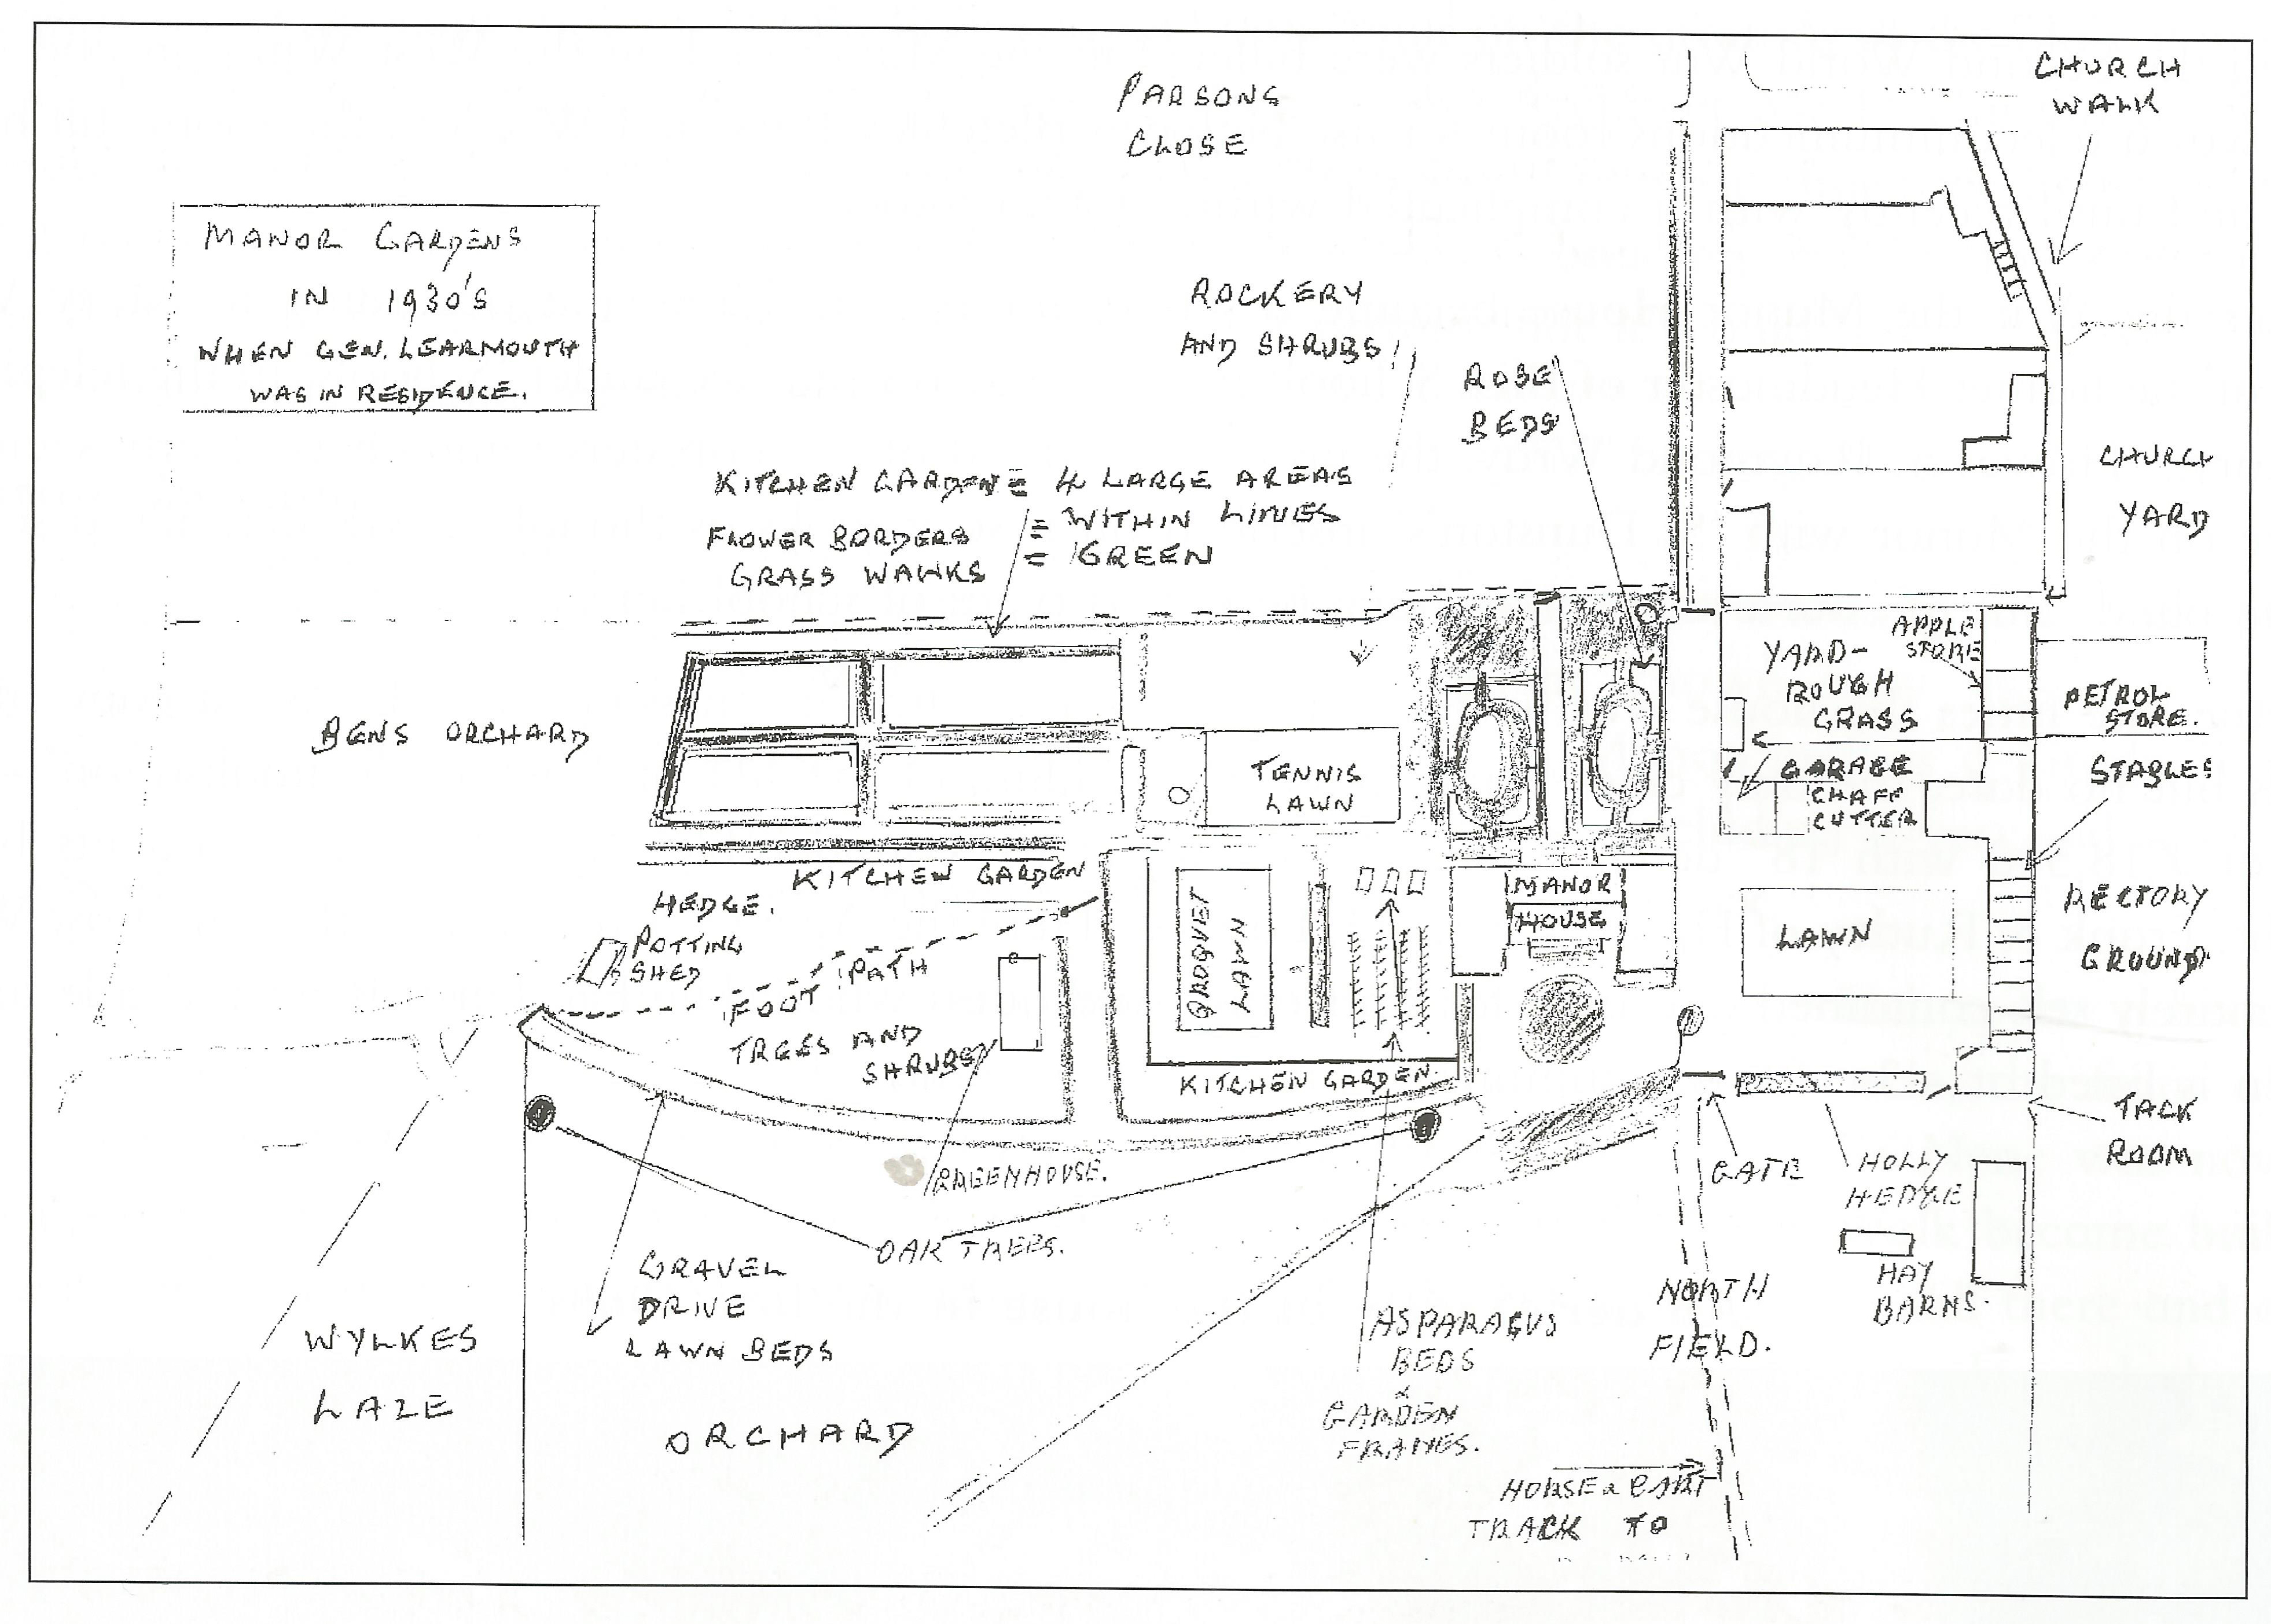 PARSONS
CLOSE
CHURCH
WALK
MANOR GARDENS
IN 1930'S
WHEN GEN. LEARMOUTH
WAS IN RESIDENCE.
ROCKERY
AND SHRUBS
ROSE
BEDS
KITCHEN GARDEN = 4 LARGE AREAS
FLOWER BORDERS = WITHIN LINES
GRASS WALKS = GREEN
CHURCH
YARD
BENS ORCHARD
TENNIS
LAWN
YARD-
ROUGH
GRASS
APPLE
STORE
PETROL
STORE.
GARAGE
CHAFF
CUTTER
STABLES
KITCHEN GARDEN
HEDGE.
POTTING
SHED
FOOT PATH
TREES AND
SHRUBS
CROQUET
LAWN
MANOR
HOUSE
LAWN
RECTORY
GROUND
KITCHEN GARDEN.
TACK
ROOM
GREENHOUSE.
GATE
HOLLY
HEDGE
OAK TREES.
HAY
BARNS.
GRAVEL
DRIVE
LAWN BEDS
NORTH
FIELD.
WYLKES
LAZE
ASPARAGUS
BEDS
&
GARDEN
FRAMES.
ORCHARD
HORSE & CART
TRACK TO